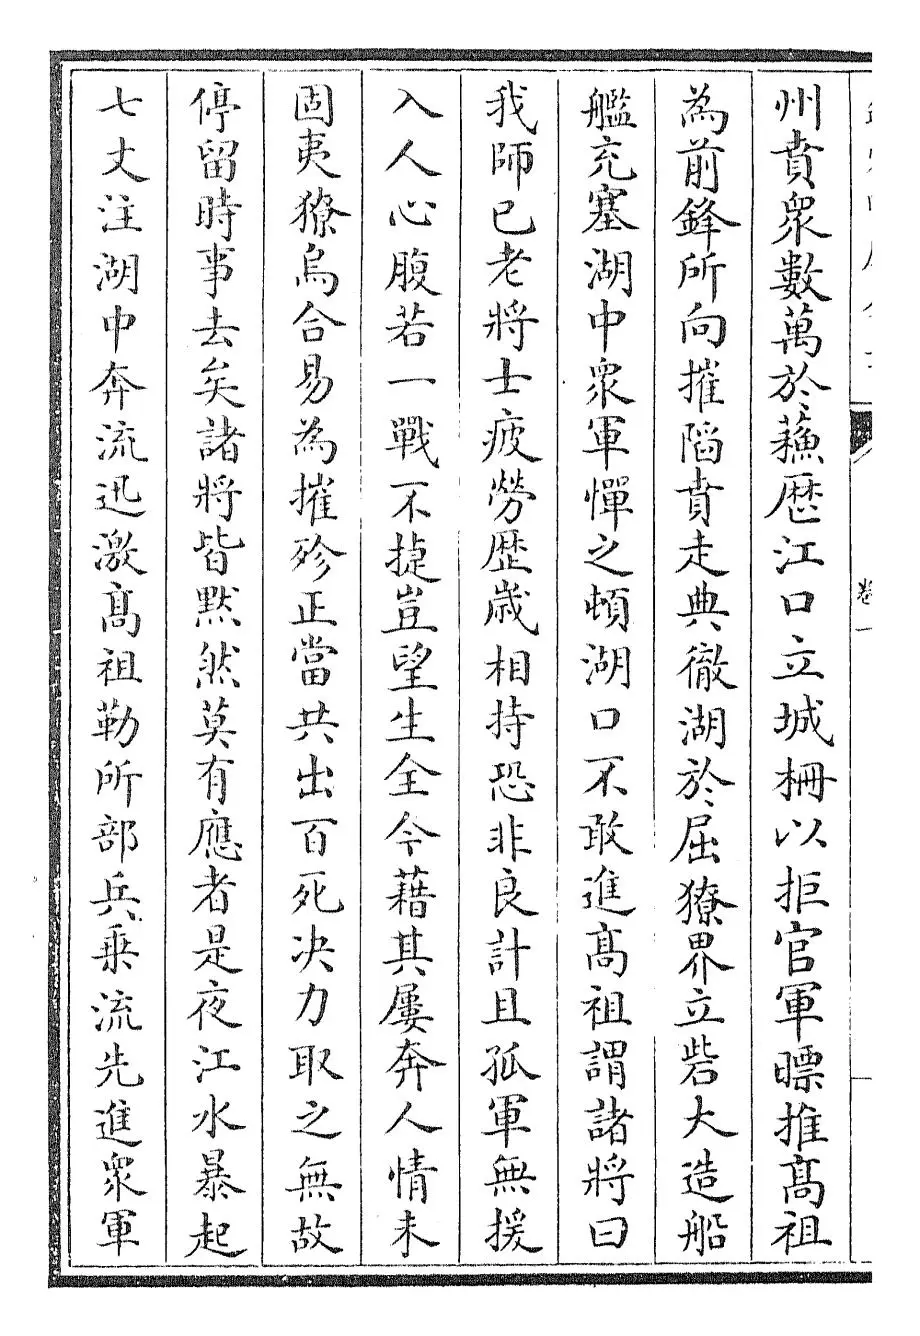 州賁衆數萬於蘓歴江口立城柵以拒官軍㬓推髙祖
為前鋒所向摧䧟賁走典徹湖於屈獠界立砦大造船
艦充塞湖中衆軍憚之頓湖口不敢進髙祖謂諸將曰
我師已老將士疲勞歴歲相持恐非良計且孤軍無援
入人心腹若一戰不捷豈望生全今藉其屢奔人情未
固夷獠烏合易為摧殄正當共出百死决力取之無故
停留時事去矣諸將皆黙然莫有應者是夜江水暴起
七丈注湖中奔流迅激髙祖勒所部兵乗流先進衆軍
卷一